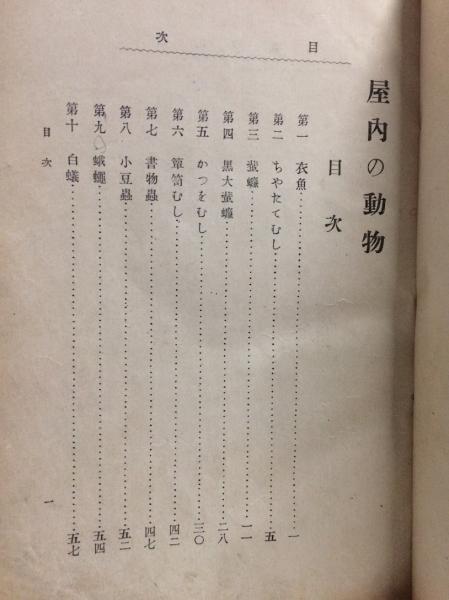 目次
屋內の動物
目次
第一 衣魚…………一
第二 ちやたてむし…………五
第三 蜚蠊…………一一
第四 黑大蜚蠊…………二八
第五 かつをむし…………三〇
第六 簞笥むし…………四二
第七 書物蟲…………四七
第八 小豆蟲…………五二
第九 蛾蠅…………五四
第十 白蟻…………五七
目次 一